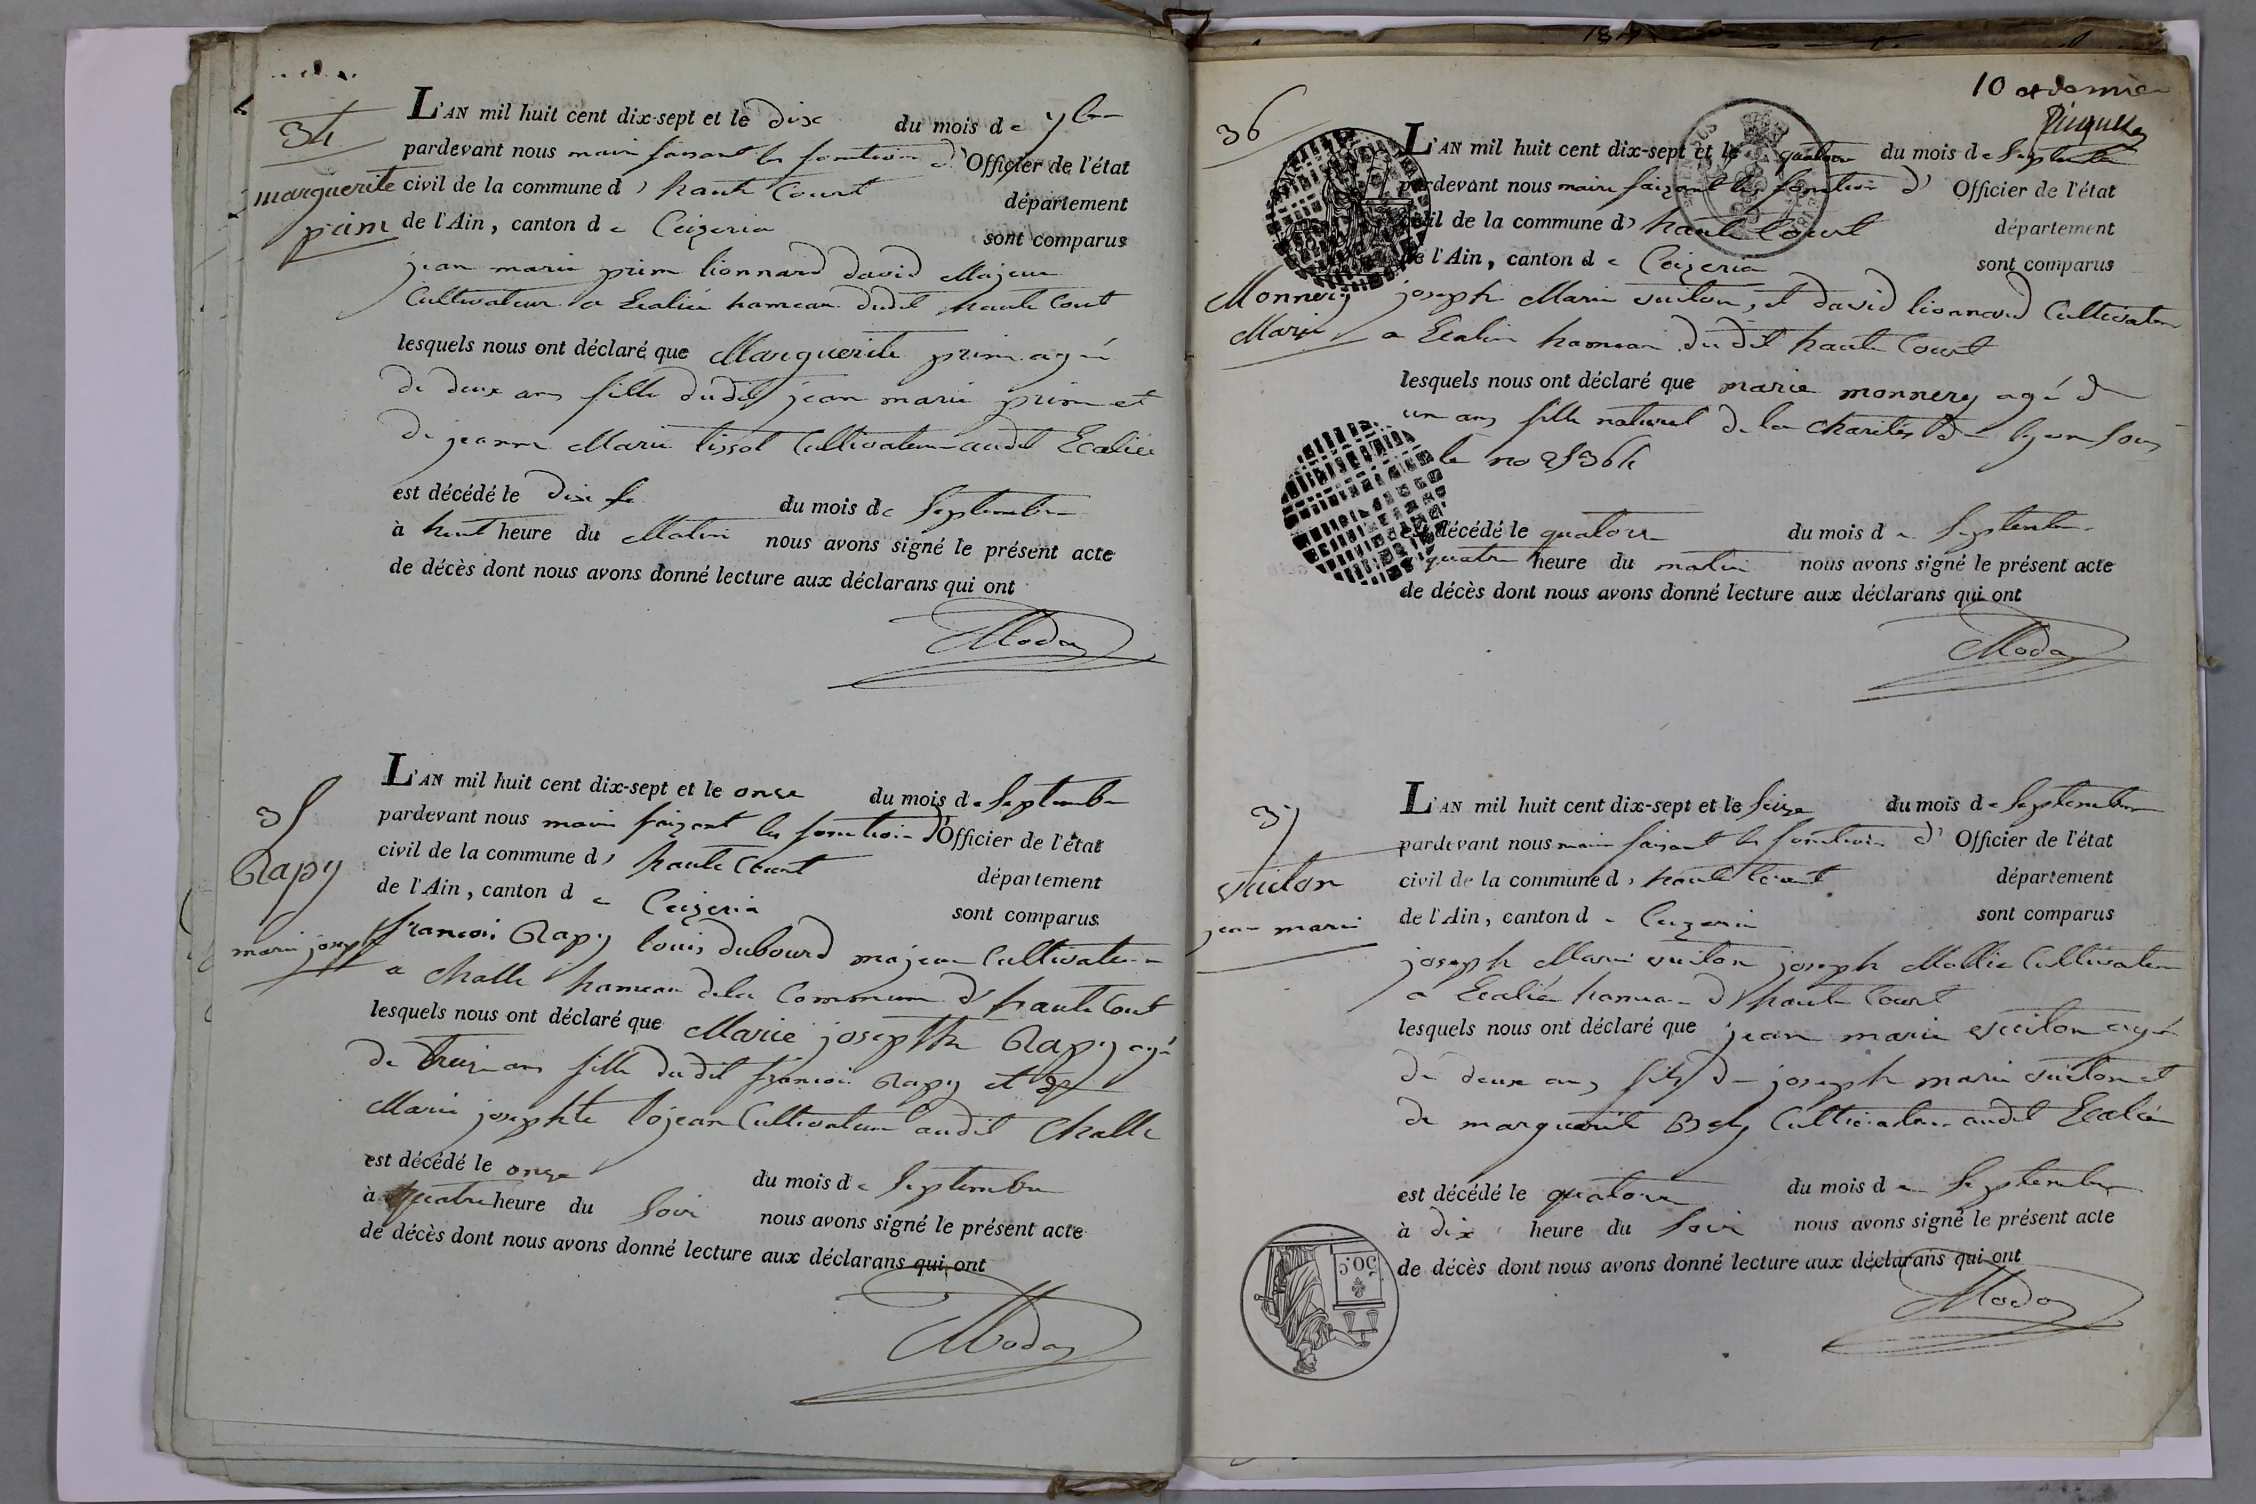 34
marguerite
prin
L'AN mil huit cent dix-sept et le dix du mois de 7bre
pardevant nous maire faisant les fonction d'Officier de l'état
civil de la commune d' haute Court département
de l'Ain, canton de Ceizeria sont comparus
jean marie prin lionnard david Majeur
Cultivateur a hameau dudit haute Court
lesquels nous ont déclaré que Marguerite prin agé
de deux ans fille dudit jean marie prin et
de jeanne Marie tissot Cultivateur audit
est décédé le dix du mois de Septembre
à huit heure du Matin nous avons signé le présent acte
de décès dont nous avons donné lecture aux déclarans qui ont
35
Rapy
marie joseph
L'AN mil huit cent dix-sept et le onze du mois de Septembre
pardevant nous maire faizant les fonction d'Officier de l'état
civil de la commune d' haute Court département
de l'Ain, canton de Ceizeria sont comparus
francois Rapy louis dubourd majeur Cultivateur
a Challe hameau dela Commune d' haute Court
lesquels nous ont déclaré que Marie josephte Rapy agé
de treize ans fille dudit francois Rapy et
Marie josephte lojean Cultivateur audit Challe
est décédé le onze du mois de Septembre
à quatre heure du Soir nous avons signé le présent acte
de décès dont nous avons donné lecture aux déclarans qui ont
10 et dernier
36
Monnery
Marie
L'AN mil huit cent dix-sept et le quatorze du mois de Septembre
pardevant nous maire faizant les fonction d' Officier de l'état
civil de la commune d' haute Court département
de l'Ain, canton de Ceizeria sont comparus
joseph Marie vuiton, et david lionnard Cultivateur
a hameau dudit haute Court
lesquels nous ont déclaré que marie monnery agé de
un ans fille naturel de la charités de lyon Sous
le no
est décédé le quatorze du mois de Septembre
quatre heure du matin nous avons signé le présent acte
de décès dont nous avons donné lecture aux déclarans qui ont
37
vuiton
jean marie
L'AN mil huit cent dix-sept et le Seize du mois de Septembre
pardevant nous maire faizant les fonction d' Officier de l'état
civil de la commune d' haute Court département
de l'Ain, canton de Ceizeria sont comparus
joseph Marie vuiton joseph Cultivateur
a hameau d' haute Court
lesquels nous ont déclaré que jean marie vuiton agé
de deux ans fils de joseph marie vuiton et
de marguerite Bely Cultivateur audit
est décédé le quatorze du mois de Septembre
à dix heure du Soir nous avons signé le présent acte
de décès dont nous avons donné lecture aux déclarans qui ont
50.C